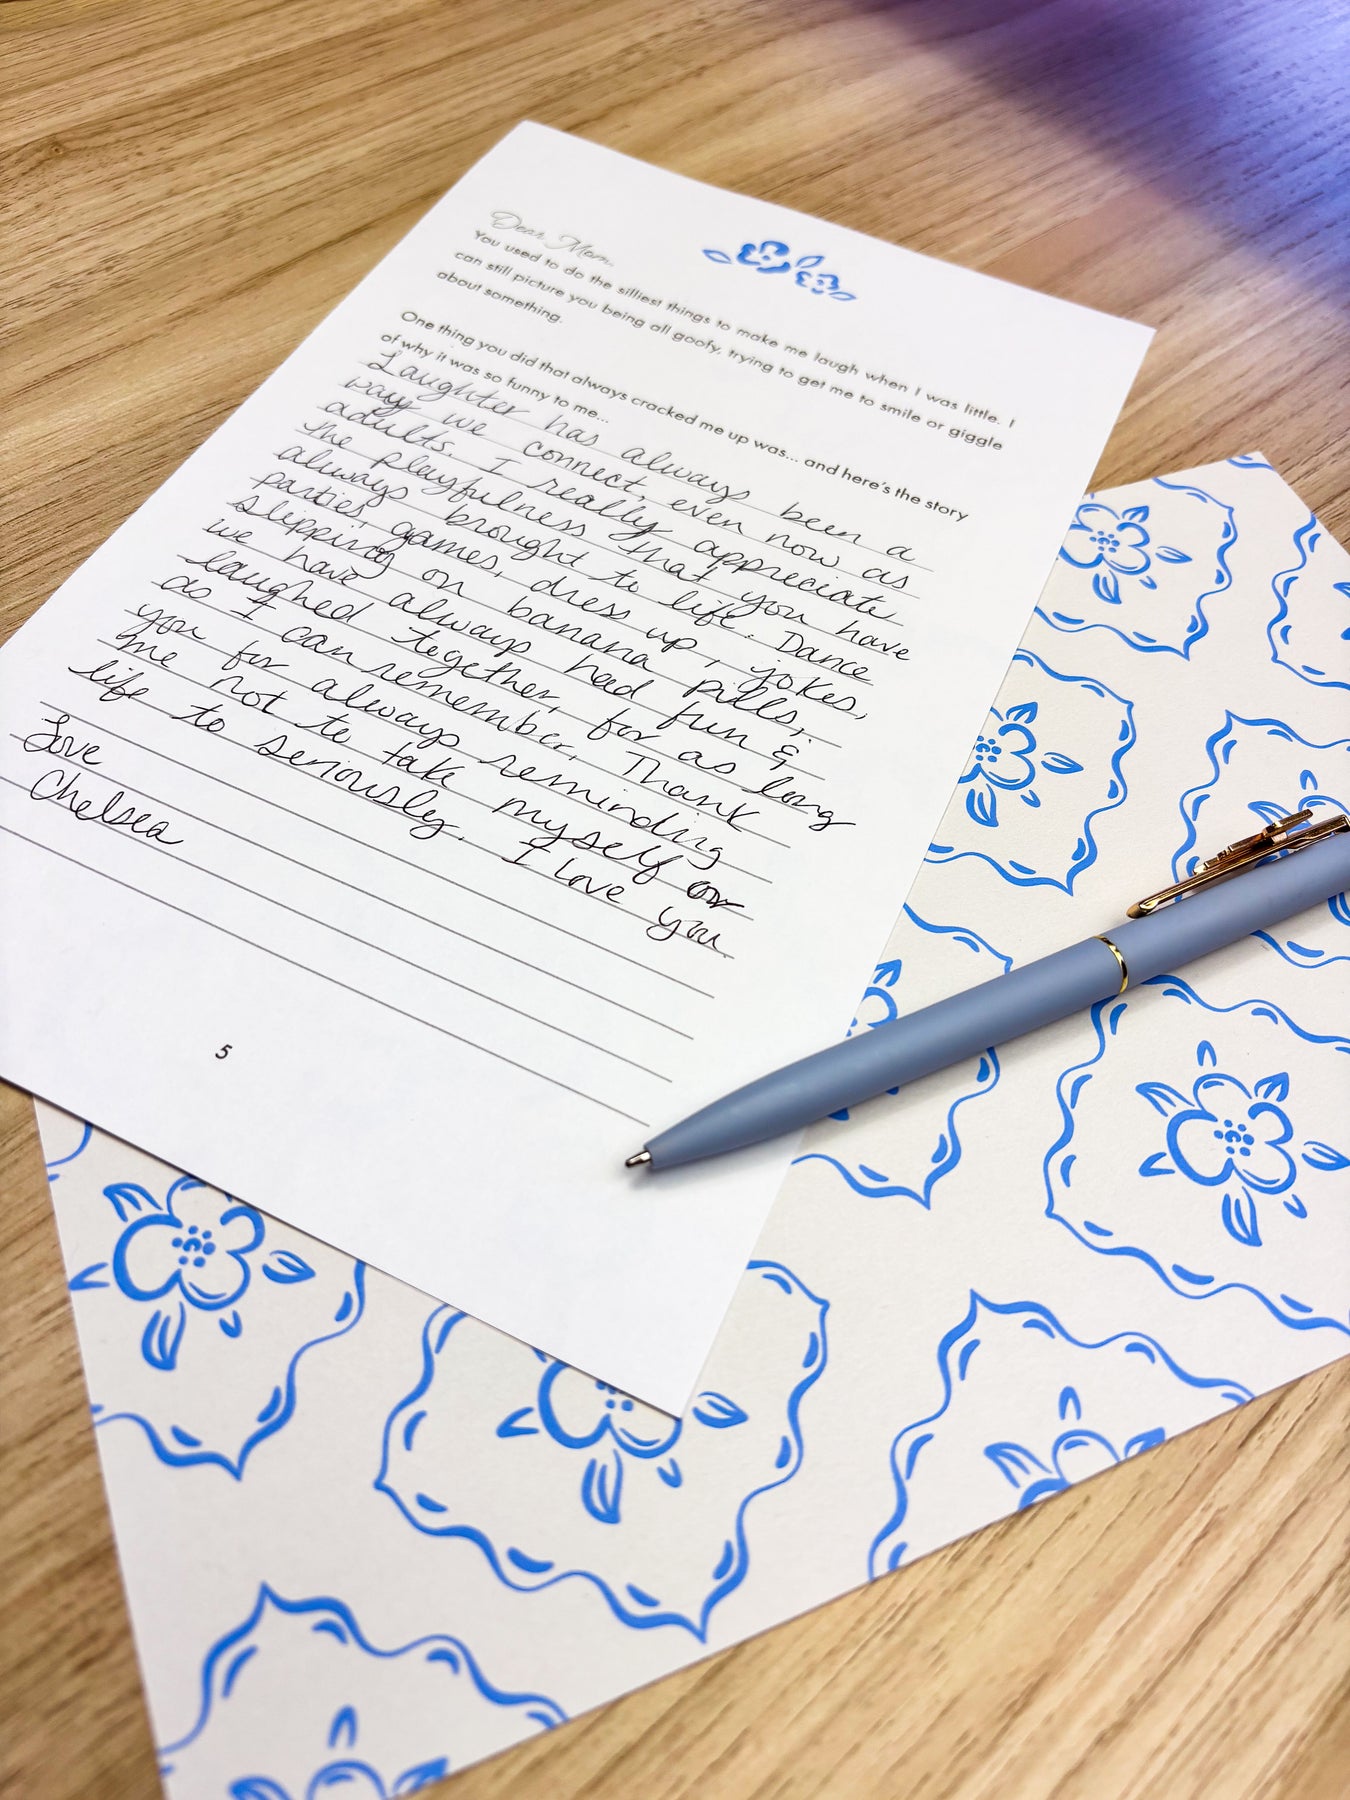 Dear Mom,
You used to do the silliest things to make me laugh when I was little. I
can still picture you being all goofy, trying to get me to smile or giggle
about something.
One thing you did that always cracked me up was... and here's the story
of why it was so funny to me...
Laughter has always been a
way we connect, even now as
adults. I really appreciate
the playfulness that you have
always brought to life. Dance
parties, games, dress up, jokes,
slipping on banana pills,
we have always had fun &
laughed together, for as long
as I can remember. Thank
you for always reminding
me not to take myself or
life to seriously. I love you.
Love
Chelsea
5